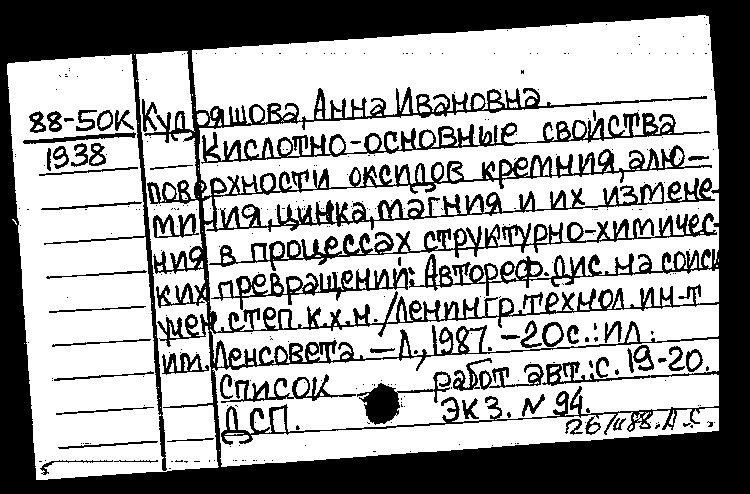 88-50К Кудряшова, Анна Ивановна.
1938 Кислотно-основные свойства
поверхности оксидов кремния, алю-
миния, цинка, магния и их измене-
ния в процессах структурно-химичес-
ких превращений: Автореф. дис. на соиск
учен. степ. к.х.н. /Ленингр. технол. ин-т
им. Ленсовета. — Л., 1987. – 20 с.: ил.
Список работ авт.: с. 19-20.
ДСП. Экз. N 94.